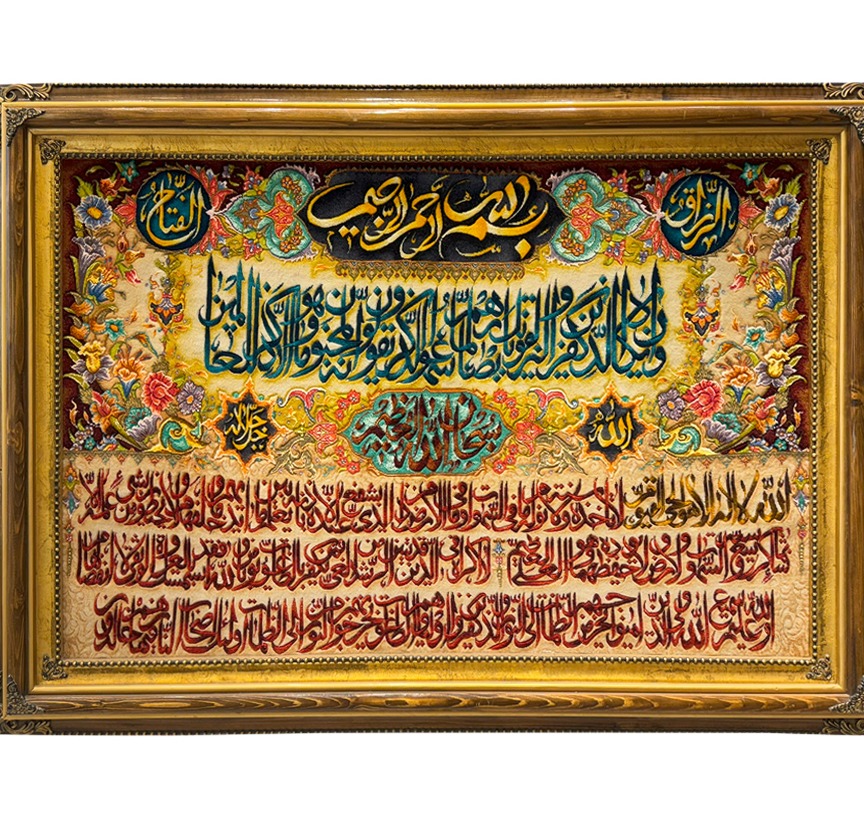 الرزاق
بسم الله الرحمن الرحيم
الفتاح
وان يكاد الذين كفروا ليزلقونك بابصارهم لما سمعوا الذكر ويقولون انه لمجنون وما هو الا ذكر للعالمين
الله
سبحان الله العظيم
جل جلاله
الله لا اله الا هو الحي القيوم لا تاخذه سنة ولا نوم له ما في السموات وما في الارض من ذا الذي يشفع عنده الا باذنه يعلم ما بين ايديهم وما خلفهم ولا يحيطون بشيء من علمه الا بما
شاء وسع كرسيه السموات والارض ولا يؤده حفظهما وهو العلي العظيم لا اكراه في الدين قد تبين الرشد من الغي فمن يكفر بالطاغوت ويؤمن بالله فقد استمسك بالعروة الوثقى لا انفصام لها
والله سميع عليم الله ولي الذين امنوا يخرجهم من الظلمات الى النور والذين كفروا اولياؤهم الطاغوت يخرجونهم من النور الى الظلمات اولئك اصحاب النار هم فيها خالدون